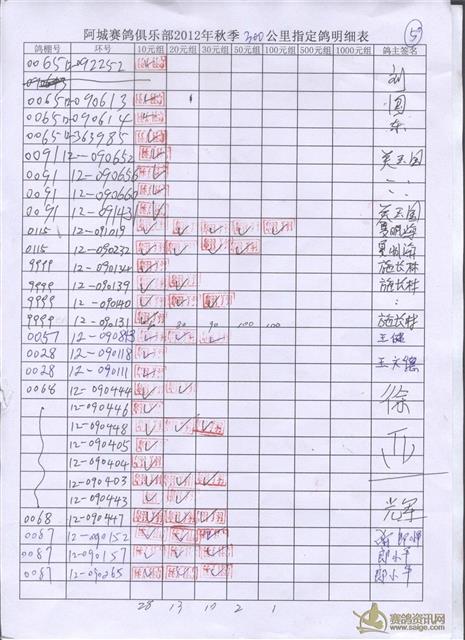 阿城赛鸽俱乐部2012年秋季300公里指定鸽明细表
5
鸽棚号 环号 10元组 20元组 30元组 50元组 100元组 200元组 500元组 1000元组 鸽主签名
0065 12-092252 刘
0065 12-090613 国
0065 12-090614 东
0065 12-363985
0091 12-090652 英玉国
0091 12-090656
0091 12-090660
0091 12-09143 英玉国
0115 12-091019
0115 12-090232
9999 施长林
9999 12-090139 施长林
9999 12-090140
9999 12-090131 施长林
30 90 100 100
0057 12-090843 王健
0028 12-090118
0028 12-090111
0068 12-090444 徐
12-090446
12-090448
12-090405
12-090404
12-090403
12-090443
0068 12-090447 辉
0087 12-090152
0087 12-090157 郎小平
0087 12-090265 郎小平
28 13 10 2 1
赛鸽资讯网
www.saige.com